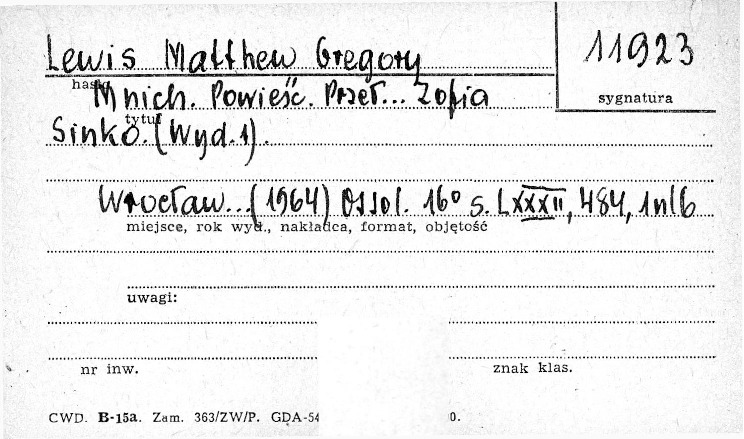 Lewis Matthew Gregory
11923
hasło
sygnatura
Mnich. Powieść. Przeł... Zofia
tytuł
Sinko. (Wyd. 1).
Wrocław... (1964) Ossol. 16° s. LXXXII, 484, 1nlb
miejsce, rok wyd., nakładca, format, objętość
uwagi:
nr inw.
znak klas.
CWD. B-15a. Zam. 363/ZW/P. GDA-54 0.